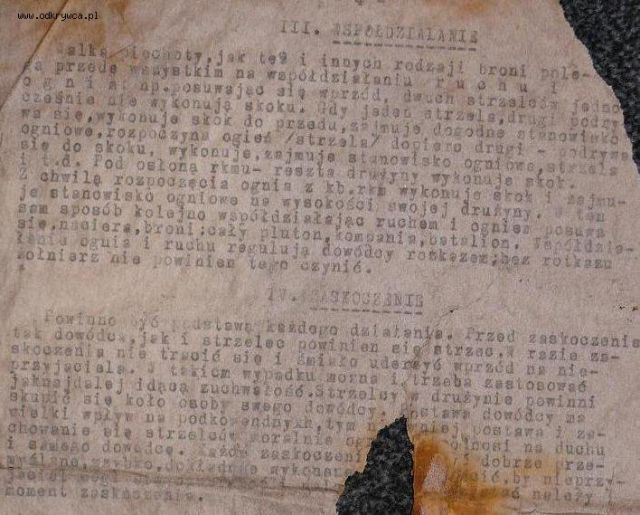 www.odkrywca.pl
III. WSPÓŁDZIAŁANIE
Walka piechoty,jak też i innych rodzaji broni pole-
ga przede wszystkim na współdziałaniu r u c h u i
o g n i a: np.posuwając się wprzód, dwuch strzelców jedno
cześnie nie wykonują skoku. Gdy jeden strzela,drugi podry
wa się,wykonuje skok do przodu,zajmuje dogodne stanowisko
ogniowe,rozpoczyna ogień /strzela/ dopiero drugi - podrywa
się do skoku, wykonuje,zajmuje stanowisko ogniowe,strzela
i t.d. Pod osłoną rkmu- reszta drużyny wykonuje skok.
Z chwilą rozpoczęcia ognia z kb.rkm wykonuje skok i zajmu-
je stanowisko ogniowe na wysokości swojej drużyny. W ten
sam sposób kolejno współdziałając ruchem i ogniem posuwa
się,naciera,broni:cały pluton,kompania,batalion. Współdzia-
łanie ognia i ruchu regulują dowódcy rozkazem;bez rozkazu
żołnierz nie powinien tego czynić.
IV. ZASKOCZENIE
Powinno być podstawą każdego działania. Przed zaskoczenie
tak dowódca,jak i strzelec powinien się strzec.W razie za-
skoczenia nie tracić się i śmiało uderzyć wprzód na nie-
przyjaciela. W takim wypadku można i trzeba zastosować
jaknajdalej idącą zuchwałość.Strzelcy w drużynie powinni
skupić się koło osoby swego dowódcy. Postawa dowódcy ma
wielki wpływ na podkomendnych,tym postawa i za-
chowanie się strzelców moralnie na duchu
i samego dowódcę. Każde zaskoczeni dobrze prze-
myślane,szybko,dokładnie wykonane by nieprzy-
jaciel należy
moment zaskoczenia.